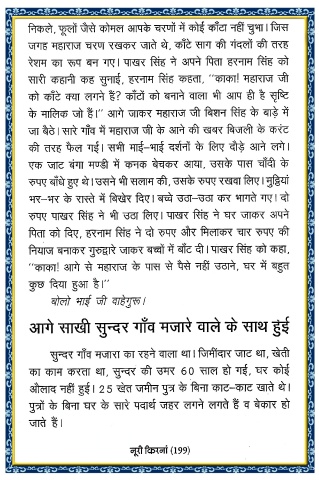 निकले, फूलों जैसे कोमल आपके चरणों में कोई काँटा नहीं चुभा। जिस
जगह महाराज चरण रखकर जाते थे, काँटे साग की गंदलों की तरह
रेशम का रूप बन गए। पाखर सिंह ने अपने पिता हरनाम सिंह को
सारी कहानी कह सुनाई, हरनाम सिंह कहता, ‘‘काका! महाराज जी
को काँटे क्या लगने हैं? काँटों को बनाने वाला भी आप ही है सृष्टि
के मालिक जो हैं।’’ आगे जाकर महाराज जी बिशन सिंह के बाड़े में
जा बैठे। सारे गाँव में महाराज जी के आने की खबर बिजली के करंट
की तरह फैल गई। सभी माई-भाई दर्शनों के लिए दौड़े आने लगे।
एक जाट बंगा मण्डी में कनक बेचकर आया, उसके पास चाँदी के
रुपए बाँधे हुए थे। उसने भी सलाम की, उसके रुपए रखवा लिए। मुट्ठियां
भर-भर के रास्ते में बिखेर दिए। बच्चे उठा-उठा कर भागते गए। दो
रुपए पाखर सिंह ने भी उठा लिए। पाखर सिंह ने घर जाकर अपने
पिता को दिए, हरनाम सिंह ने दो रुपए और मिलाकर चार रुपए की
नियाज बनाकर गुरुद्वारे जाकर बच्चों में बाँट दी। पाखर सिंह को कहा,
‘‘काका! आगे से महाराज के पास से पैसे नहीं उठाने, घर में बहुत
कुछ दिया हुआ है।’’
बोलो भाई जी वाहेगुरू।
आगे साखी सुन्दर गाँव मजारे वाले के साथ हुंई
सुन्दर गाँव मजारा का रहने वाला था। जिमींदार जाट था, खेती
का काम करता था, सुन्दर की उमर 60 साल हो गई, घर कोई
औलाद नहीं हुई। 25 खेत जमीन पुत्र के बिना काट-काट खाते थे।
पुत्रों के बिना घर के सारे पदार्थ जहर लगने लगते हैं व बेकार हो
जाते हैं।
नूरी किरनां (199)